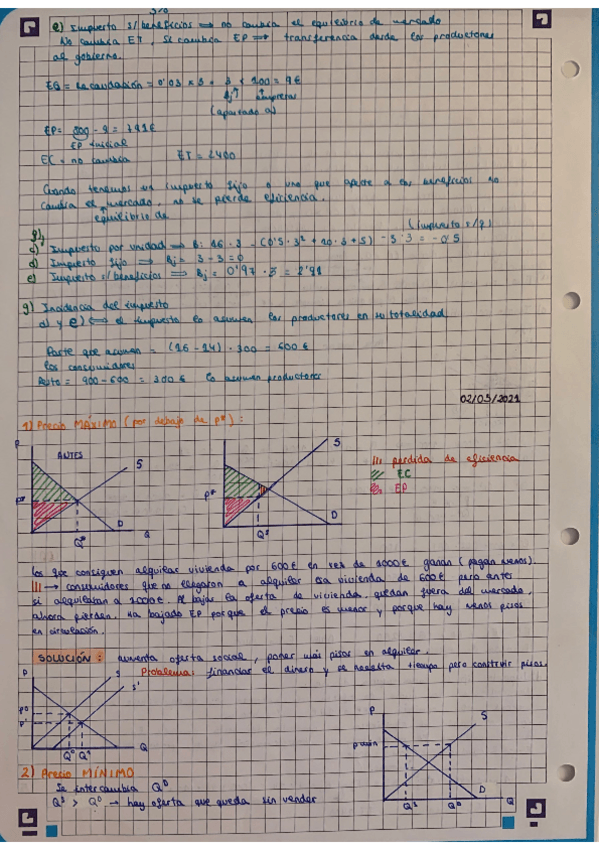 e) Impuesto s/ beneficios ⟹ no cambia el equilibrio de mercado
No cambia ET, sí cambia EP ⟹ transferencia desde los productores
al gobierno.
EG = Recaudación = 0'03 × 3 × 100 = 9€
Bj empresa
(apartado a)
EP = 300 - 9 = 291€
EP inicial
EC = no cambia ET = 2400
Cuando tenemos un impuesto fijo o uno que afecte a los beneficios no
cambia el mercado, no se pierde eficiencia.
equilibrio de
(impuesto x q)
c) Impuesto por unidad ⟹ B: 16 · 3 - (0'5 · 3² + 10 · 3 + 5) - 3 · 3 = -0'5
d) Impuesto fijo ⟹ Bj = 3 - 3 = 0
e) Impuesto s/ beneficios ⟹ Bj = 0'97 · 3 = 2'91
g) Incidencia del impuesto
d) y e) ⟺ el impuesto lo asumen los productores en su totalidad
Parte que asumen = (16 - 14) · 300 = 600 €
los consumidores
Resto = 900 - 600 = 300 € lo asumen productores
02/03/2021
1) Precio MÁXIMO (por debajo de p*):
P ANTES S
P* D Q
Q*
S
P* D
Qˢ
||| pérdida de eficiencia
EC
EP
los que consiguen alquilar vivienda por 600€ en vez de 1000€ ganan (pagan menos).
||| → consumidores que no llegaron a alquilar la vivienda de 600€ pero antes
sí alquilaban a 1000€. Al bajar la oferta de vivienda, quedan fuera del mercado,
ahora pierden. Ha bajado EP porque el precio es menor y porque hay menos pisos
en circulación.
SOLUCIÓN: aumenta oferta social, poner más pisos en alquiler.
Problema: financiar el dinero y se necesita tiempo para construir pisos.
P S S'
P⁰
P'
Q⁰ Q¹ Q
P S
D
Q
2) Precio MÍNIMO
Se intercambia Qᴰ
Qˢ > Qᴰ → hay oferta que queda sin vender